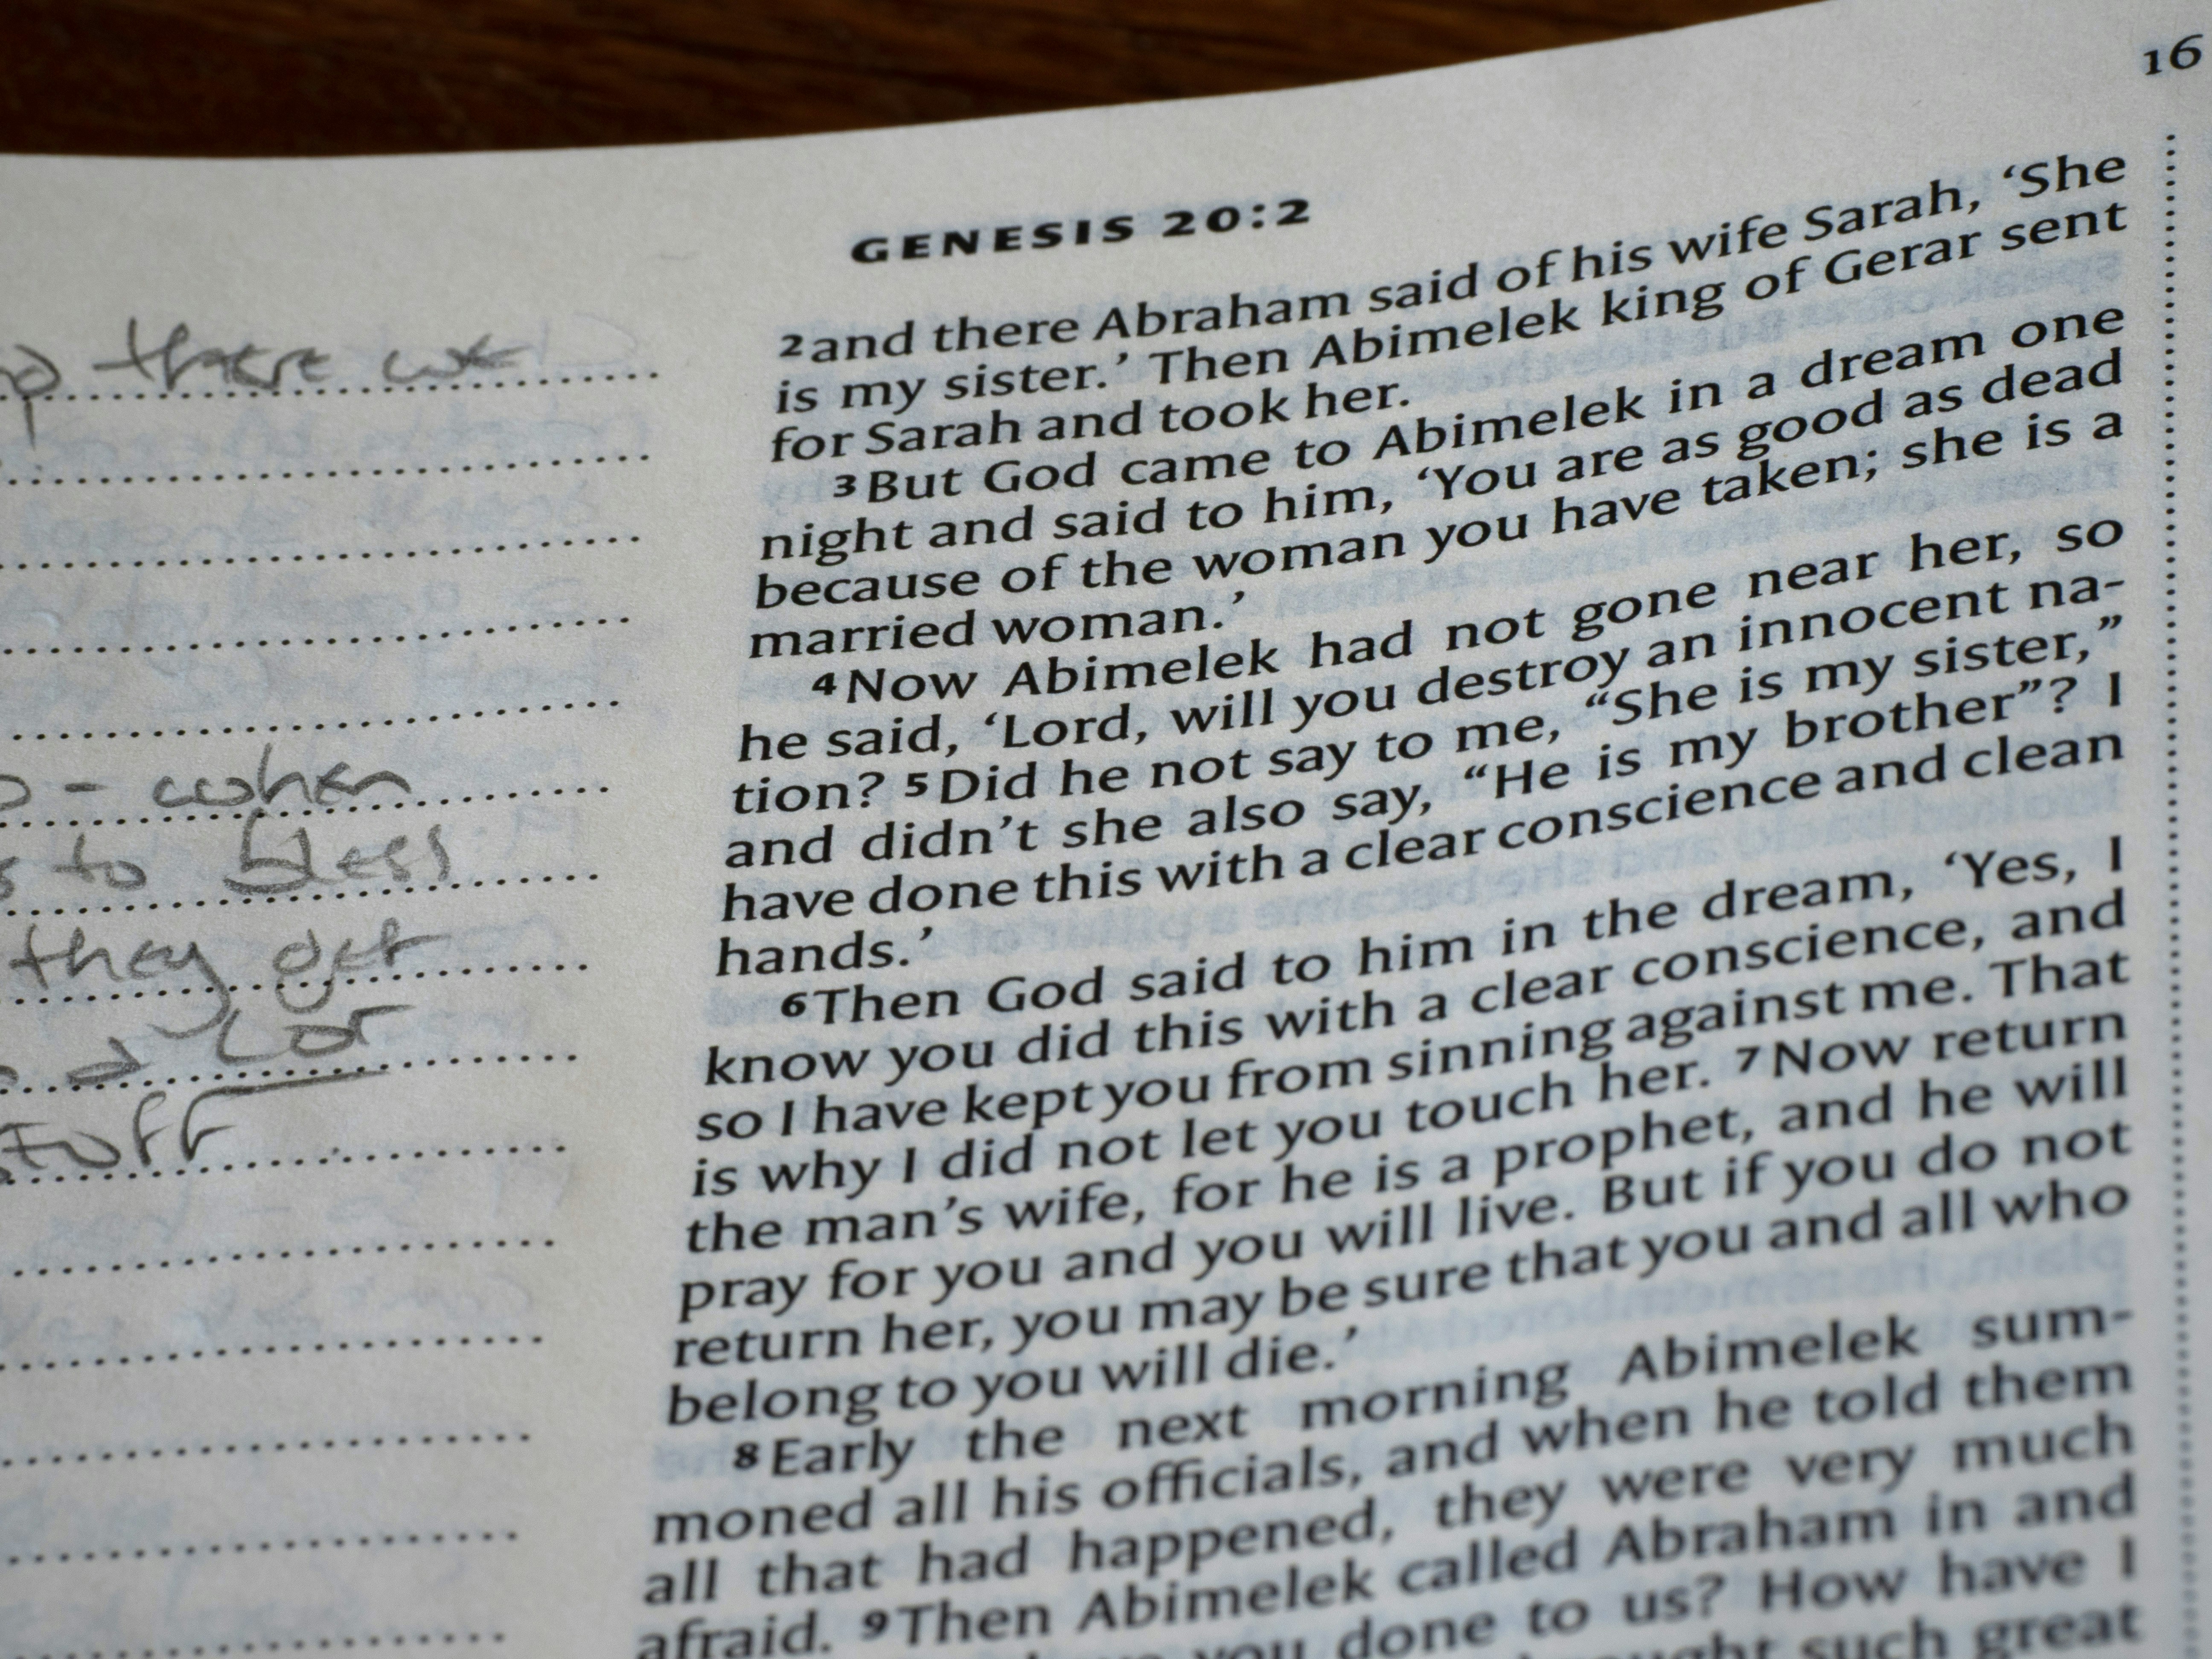 16
GENESIS 20:2
2 and there Abraham said of his wife Sarah, ‘She
is my sister.’ Then Abimelek king of Gerar sent
for Sarah and took her.
3 But God came to Abimelek in a dream one
night and said to him, ‘You are as good as dead
because of the woman you have taken; she is a
married woman.’
4 Now Abimelek had not gone near her, so
he said, ‘Lord, will you destroy an innocent na-
tion? 5 Did he not say to me, “She is my sister,”
and didn’t she also say, “He is my brother”? I
have done this with a clear conscience and clean
hands.’
6 Then God said to him in the dream, ‘Yes, I
know you did this with a clear conscience, and
so I have kept you from sinning against me. That
is why I did not let you touch her. 7 Now return
the man’s wife, for he is a prophet, and he will
pray for you and you will live. But if you do not
return her, you may be sure that you and all who
belong to you will die.’
8 Early the next morning Abimelek sum-
moned all his officials, and when he told them
all that had happened, they were very much
afraid. 9 Then Abimelek called Abraham in and
you done to us? How have I
such great
there
- when
to bless
they get
→ Lot
stuff